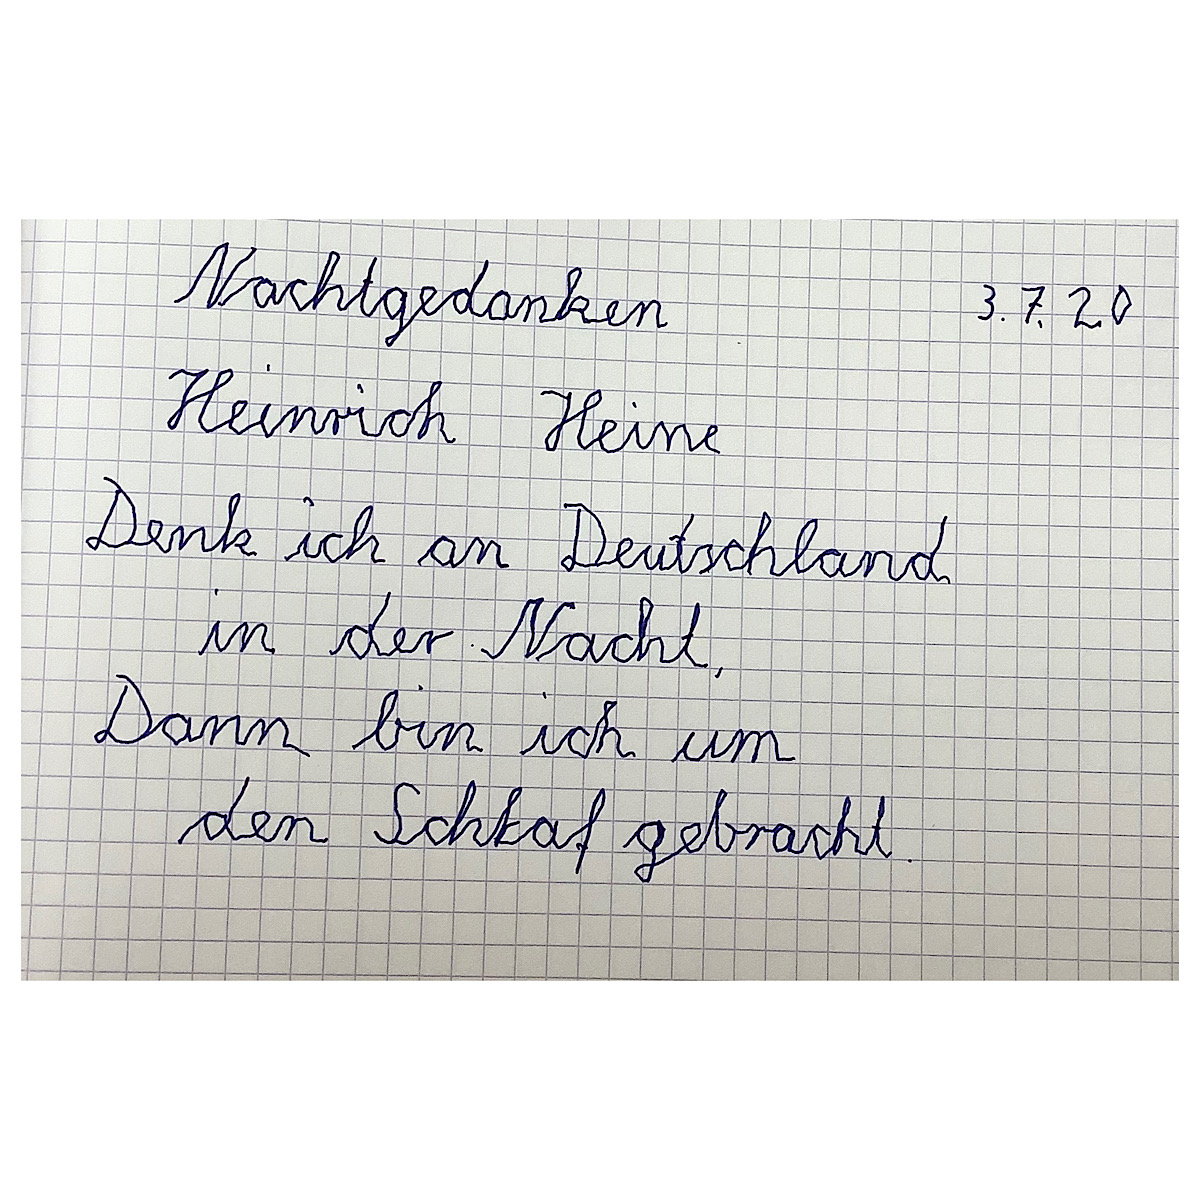 Nachtgedanken 3.7.20
Heinrich Heine
Denk ich an Deutschland
in der Nacht,
Dann bin ich um
den Schlaf gebracht.